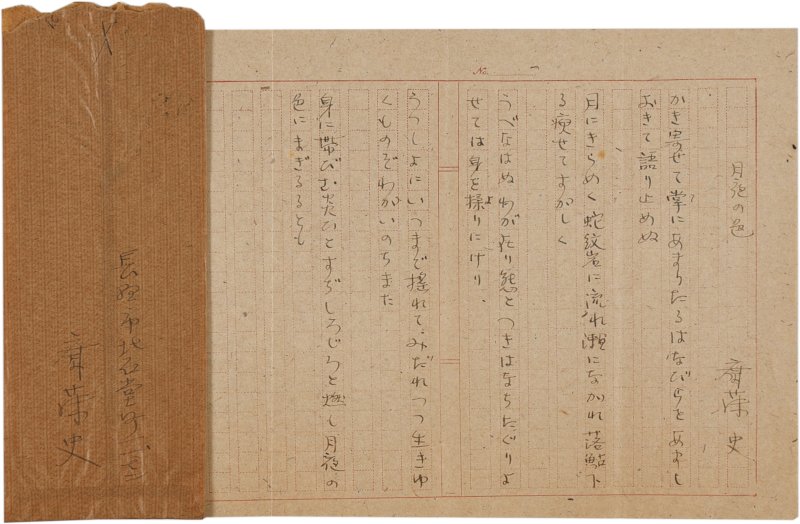 No.
月夜の色
齋藤史
かき寄せて掌にあまりたるはなびらをあまし
おきて語り止めぬ
月にきらめく蛇紋岩に流れ瀬になかれ落鮎下
る瘦せてすがしく
うべなはぬわが在り態とつきはなちたぐりよ
せては身を揉りにけり、
うつしよにいつまで揺れてみだれつつ生きゆ
くものぞわがいのちまた
身に帯びむ炎ひとすぢしろじろと燃も月夜の
色にまぎるるとも
長野市北石堂町
齋藤史